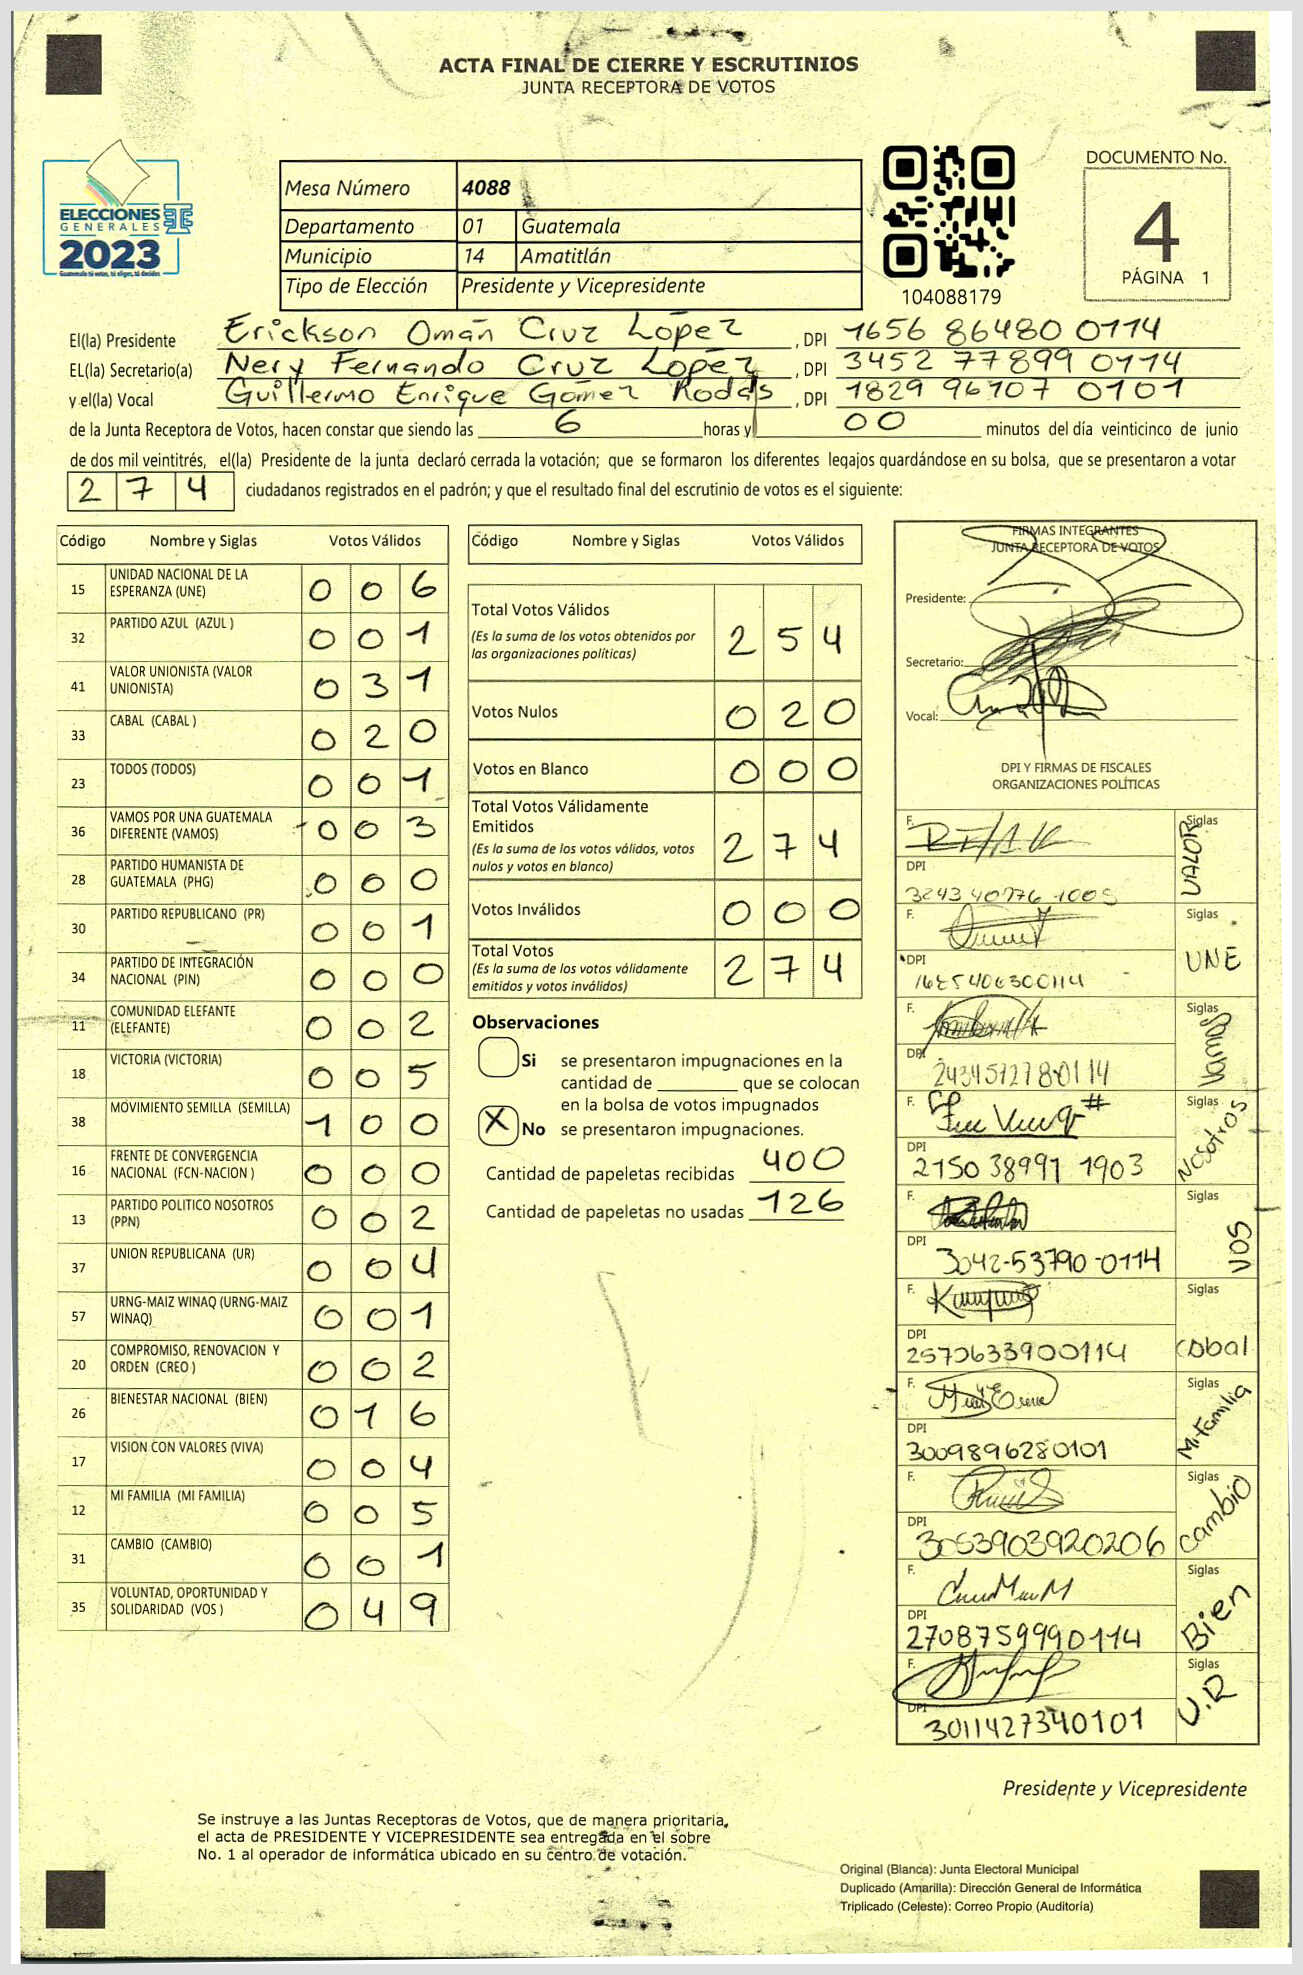 ACTA FINAL DE CIERRE Y ESCRUTINIOS
JUNTA RECEPTORA DE VOTOS
ELECCIONES
GENERALES
2023
Guatemala tú votas, tú eliges, tú decides
Mesa Número 4088
Departamento 01 Guatemala
Municipio 14 Amatitlán
Tipo de Elección Presidente y Vicepresidente
104088179
DOCUMENTO No.
4
PÁGINA 1
El(la) Presidente Erickson Omán Cruz López, DPI 1656 86480 0114
EL(la) Secretario(a) Nery Fernando Cruz López, DPI 3452 77899 0114
y el(la) Vocal Guillermo Enrique Gómez Rodas, DPI 1829 96707 0101
de la Junta Receptora de Votos, hacen constar que siendo las 6 horas y 00 minutos del día veinticinco de junio
de dos mil veintitrés, el(la) Presidente de la junta declaró cerrada la votación; que se formaron los diferentes legajos guardándose en su bolsa, que se presentaron a votar
274 ciudadanos registrados en el padrón; y que el resultado final del escrutinio de votos es el siguiente:
Código Nombre y Siglas Votos Válidos
15 UNIDAD NACIONAL DE LA ESPERANZA (UNE) 006
32 PARTIDO AZUL (AZUL ) 001
41 VALOR UNIONISTA (VALOR UNIONISTA) 031
33 CABAL (CABAL ) 020
23 TODOS (TODOS) 001
36 VAMOS POR UNA GUATEMALA DIFERENTE (VAMOS) 003
28 PARTIDO HUMANISTA DE GUATEMALA (PHG) 000
30 PARTIDO REPUBLICANO (PR) 001
34 PARTIDO DE INTEGRACIÓN NACIONAL (PIN) 000
11 COMUNIDAD ELEFANTE (ELEFANTE) 002
18 VICTORIA (VICTORIA) 005
38 MOVIMIENTO SEMILLA (SEMILLA) 100
16 FRENTE DE CONVERGENCIA NACIONAL (FCN-NACION ) 000
13 PARTIDO POLITICO NOSOTROS (PPN) 002
37 UNION REPUBLICANA (UR) 004
57 URNG-MAIZ WINAQ (URNG-MAIZ WINAQ) 001
20 COMPROMISO, RENOVACION Y ORDEN (CREO ) 002
26 BIENESTAR NACIONAL (BIEN) 016
17 VISION CON VALORES (VIVA) 004
12 MI FAMILIA (MI FAMILIA) 005
31 CAMBIO (CAMBIO) 001
35 VOLUNTAD, OPORTUNIDAD Y SOLIDARIDAD (VOS ) 049
Código Nombre y Siglas Votos Válidos
Total Votos Válidos 254
(Es la suma de los votos obtenidos por
las organizaciones políticas)
Votos Nulos 020
Votos en Blanco 000
Total Votos Válidamente
Emitidos 274
(Es la suma de los votos válidos, votos
nulos y votos en blanco)
Votos Inválidos 000
Total Votos 274
(Es la suma de los votos válidamente
emitidos y votos inválidos)
Observaciones
Si se presentaron impugnaciones en la
cantidad de ________ que se colocan
en la bolsa de votos impugnados
X No se presentaron impugnaciones.
Cantidad de papeletas recibidas 400
Cantidad de papeletas no usadas 126
FIRMAS INTEGRANTES
JUNTA RECEPTORA DE VOTOS
Presidente:
Secretario:
Vocal:
DPI Y FIRMAS DE FISCALES
ORGANIZACIONES POLÍTICAS
F. Siglas VALOR
DPI
F. Siglas UNE
DPI
F. Siglas Vamos
DPI 2434572780114
F. Siglas Nosotros
DPI 2150 38991 1903
F. Siglas VOS
DPI 3042-53790-0114
F. Siglas cabal
DPI 2570633900114
F. Siglas Mi Familia
DPI 3009896280101
F. Siglas cambio
DPI 3053903920206
F. Siglas Bien
DPI 2708759990114
F. Siglas U.R
DPI 3011427340101
Presidente y Vicepresidente
Se instruye a las Juntas Receptoras de Votos, que de manera prioritaria,
el acta de PRESIDENTE Y VICEPRESIDENTE sea entregada en el sobre
No. 1 al operador de informática ubicado en su centro de votación.
Original (Blanca): Junta Electoral Municipal
Duplicado (Amarilla): Dirección General de Informática
Triplicado (Celeste): Correo Propio (Auditoría)